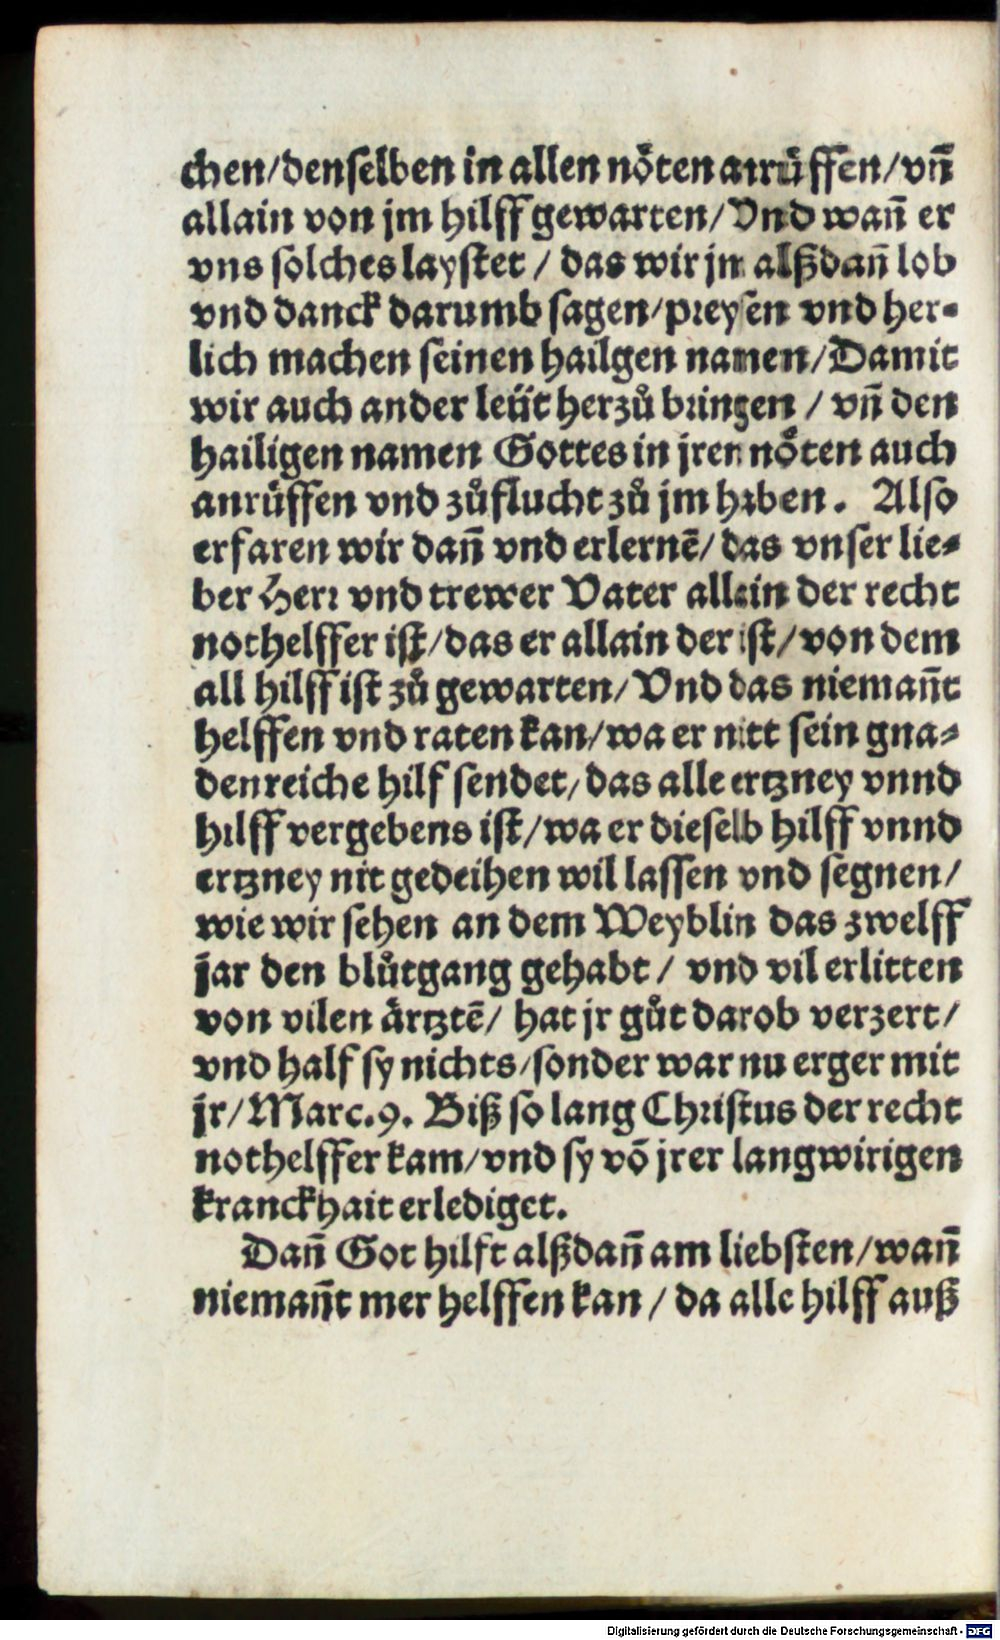 chen/denselben in allen nöten anrüffen/vñ
allain von jm hilff gewarten/Vnd wañ er
vns solches laystet / das wir jm alßdañ lob
vnd danck darumb sagen/preysen vnd her-
lich machen seinen hailgen namen/Damit
wir auch ander leüt herzů bringen / vñ den
hailigen namen Gottes in jren nöten auch
anrüffen vnd zůflucht zů jm haben. Also
erfaren wir dañ vnd erlernē/ das vnser lie-
ber Herr vnd trewer Vater allain der recht
nothelffer ist/das er allain der ist/von dem
all hilff ist zů gewarten/ Vnd das niemañt
helffen vnd raten kan/wa er nitt sein gna-
denreiche hilf sendet/das alle ertzney vnnd
hilff vergebens ist/wa er dieselb hilff vnnd
ertzney nit gedeihen wil lassen vnd segnen/
wie wir sehen an dem Weyblin das zwelff
jar den blůtgang gehabt / vnd vil erlitten
von vilen ärtztē/ hat jr gůt darob verzert/
vnd half sy nichts/sonder war nu erger mit
jr/Marc.9. Biß so lang Christus der recht
nothelffer kam/vnd sy võ jrer langwirigen
kranckhait erlediget.
Dañ Got hilft alßdañ am liebsten/wañ
niemañt mer helffen kan / da alle hilff auß
Digitalisierung gefördert durch die Deutsche Forschungsgemeinschaft - DFG